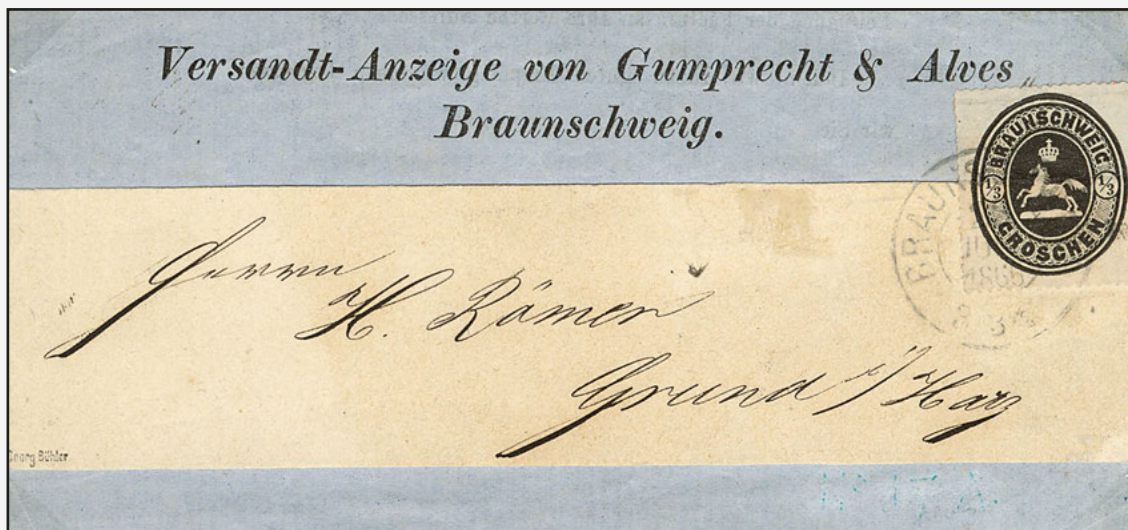 Versandt-Anzeige von Gumprecht & Alves
Braunschweig.
BRAUNSCHWEIG
1/3 1/3
GROSCHEN
Herrn
H. Römer
Grund i/Harz
Georg Bühler